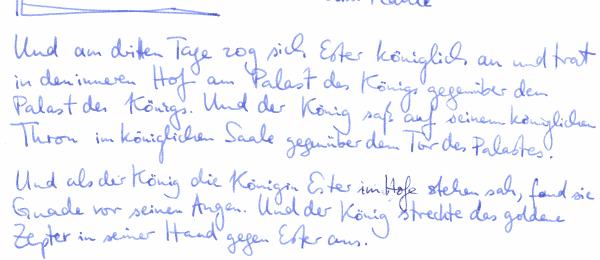 Und am dritten Tage zog sich Ester königlich an und trat
in den inneren Hof am Palast des Königs gegenüber dem
Palast des Königs. Und der König saß auf seinem königlichen
Thron im königlichen Saale gegenüber dem Tor des Palastes.
Und als der König die Königin Ester im Hofe stehen sah, fand sie
Gnade vor seinen Augen. Und der König streckte das goldene
Zepter in seiner Hand gegen Ester aus.